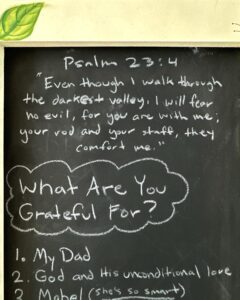 Psalm 23:4
"Even though I walk through
the darkest valley, I will fear
no evil, for you are with me;
your rod and your staff, they
comfort me."
What Are You
Grateful For?
1. My Dad
2. God and His unconditional love
3 Mabel (she's so smart)